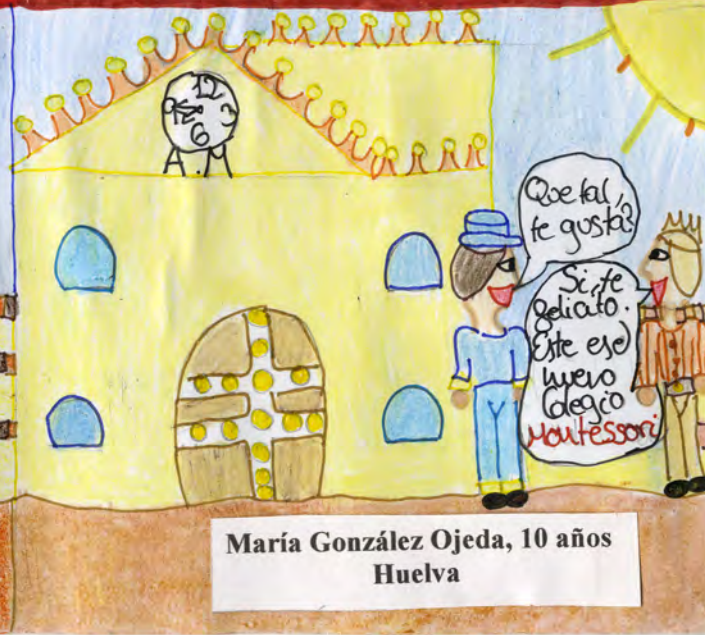 12
3
6
A.M
Que tal,
te gusta?
Si, te
Este es el
nuevo
Colegio
Montessori
María González Ojeda, 10 años
Huelva